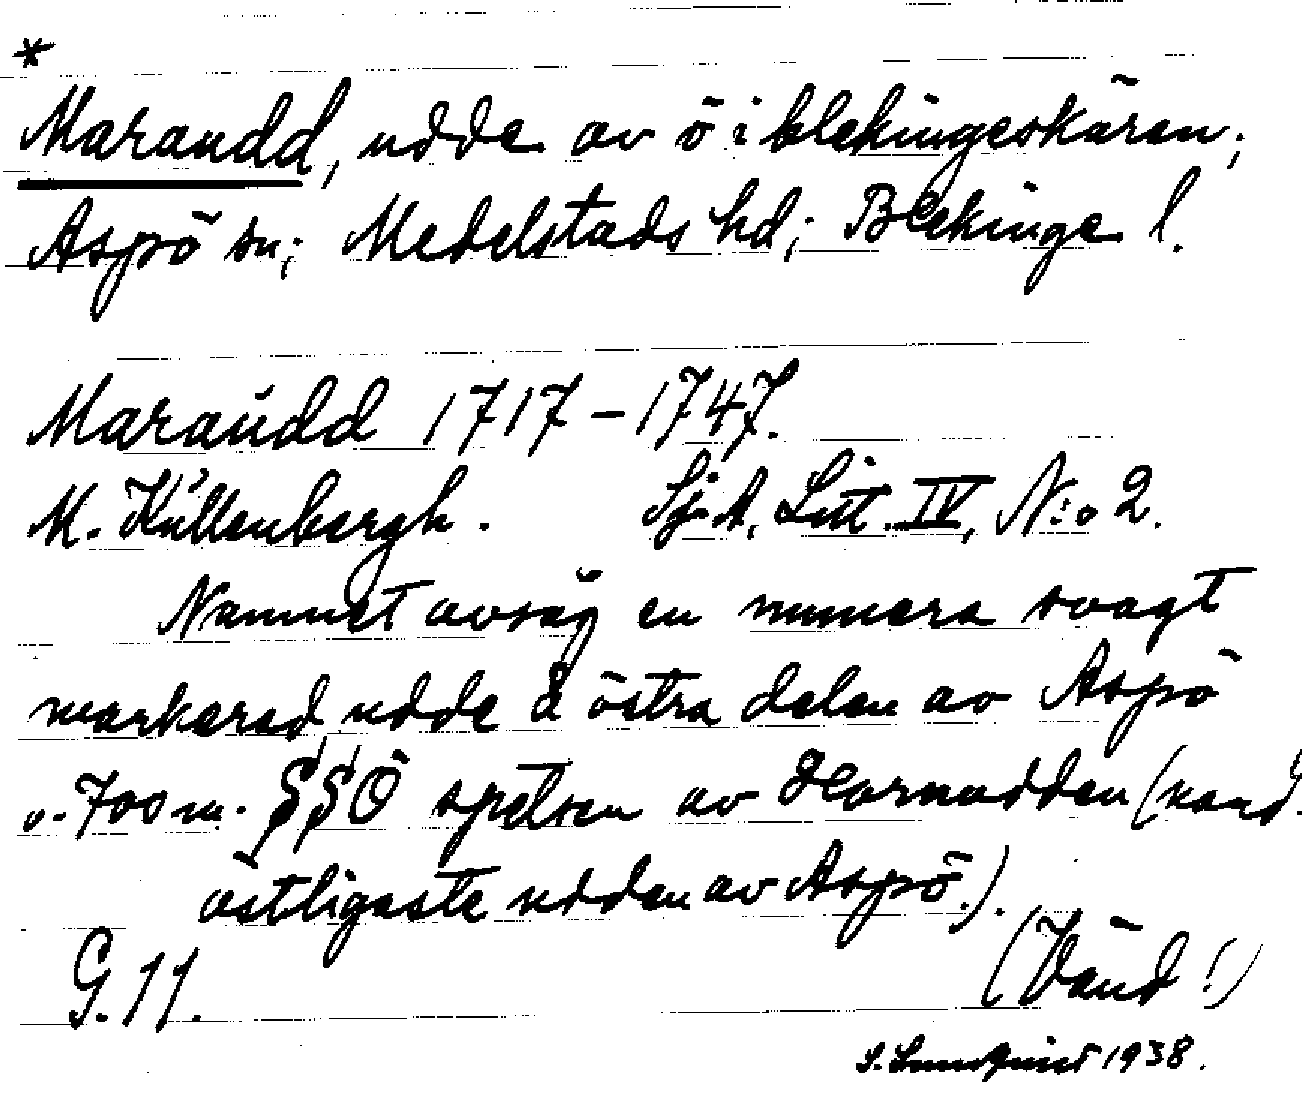 *
Maraudd, udde av ö i blekingeskären;
Aspö sn; Medelstads hd; Blekinge l.
Maraudd 1717–1747.
M. Küllenbergh. Sj.A. Litt. IV, N:o 2.
Namnet avsåg en numera svagt
markerad udde å östra delen av Aspö
c. 700 m. SSÖ spetsen av Hornudden (nord-
östligaste udden av Aspö.).
G. 11. (Vänd!)
S. Lundquist 1938.